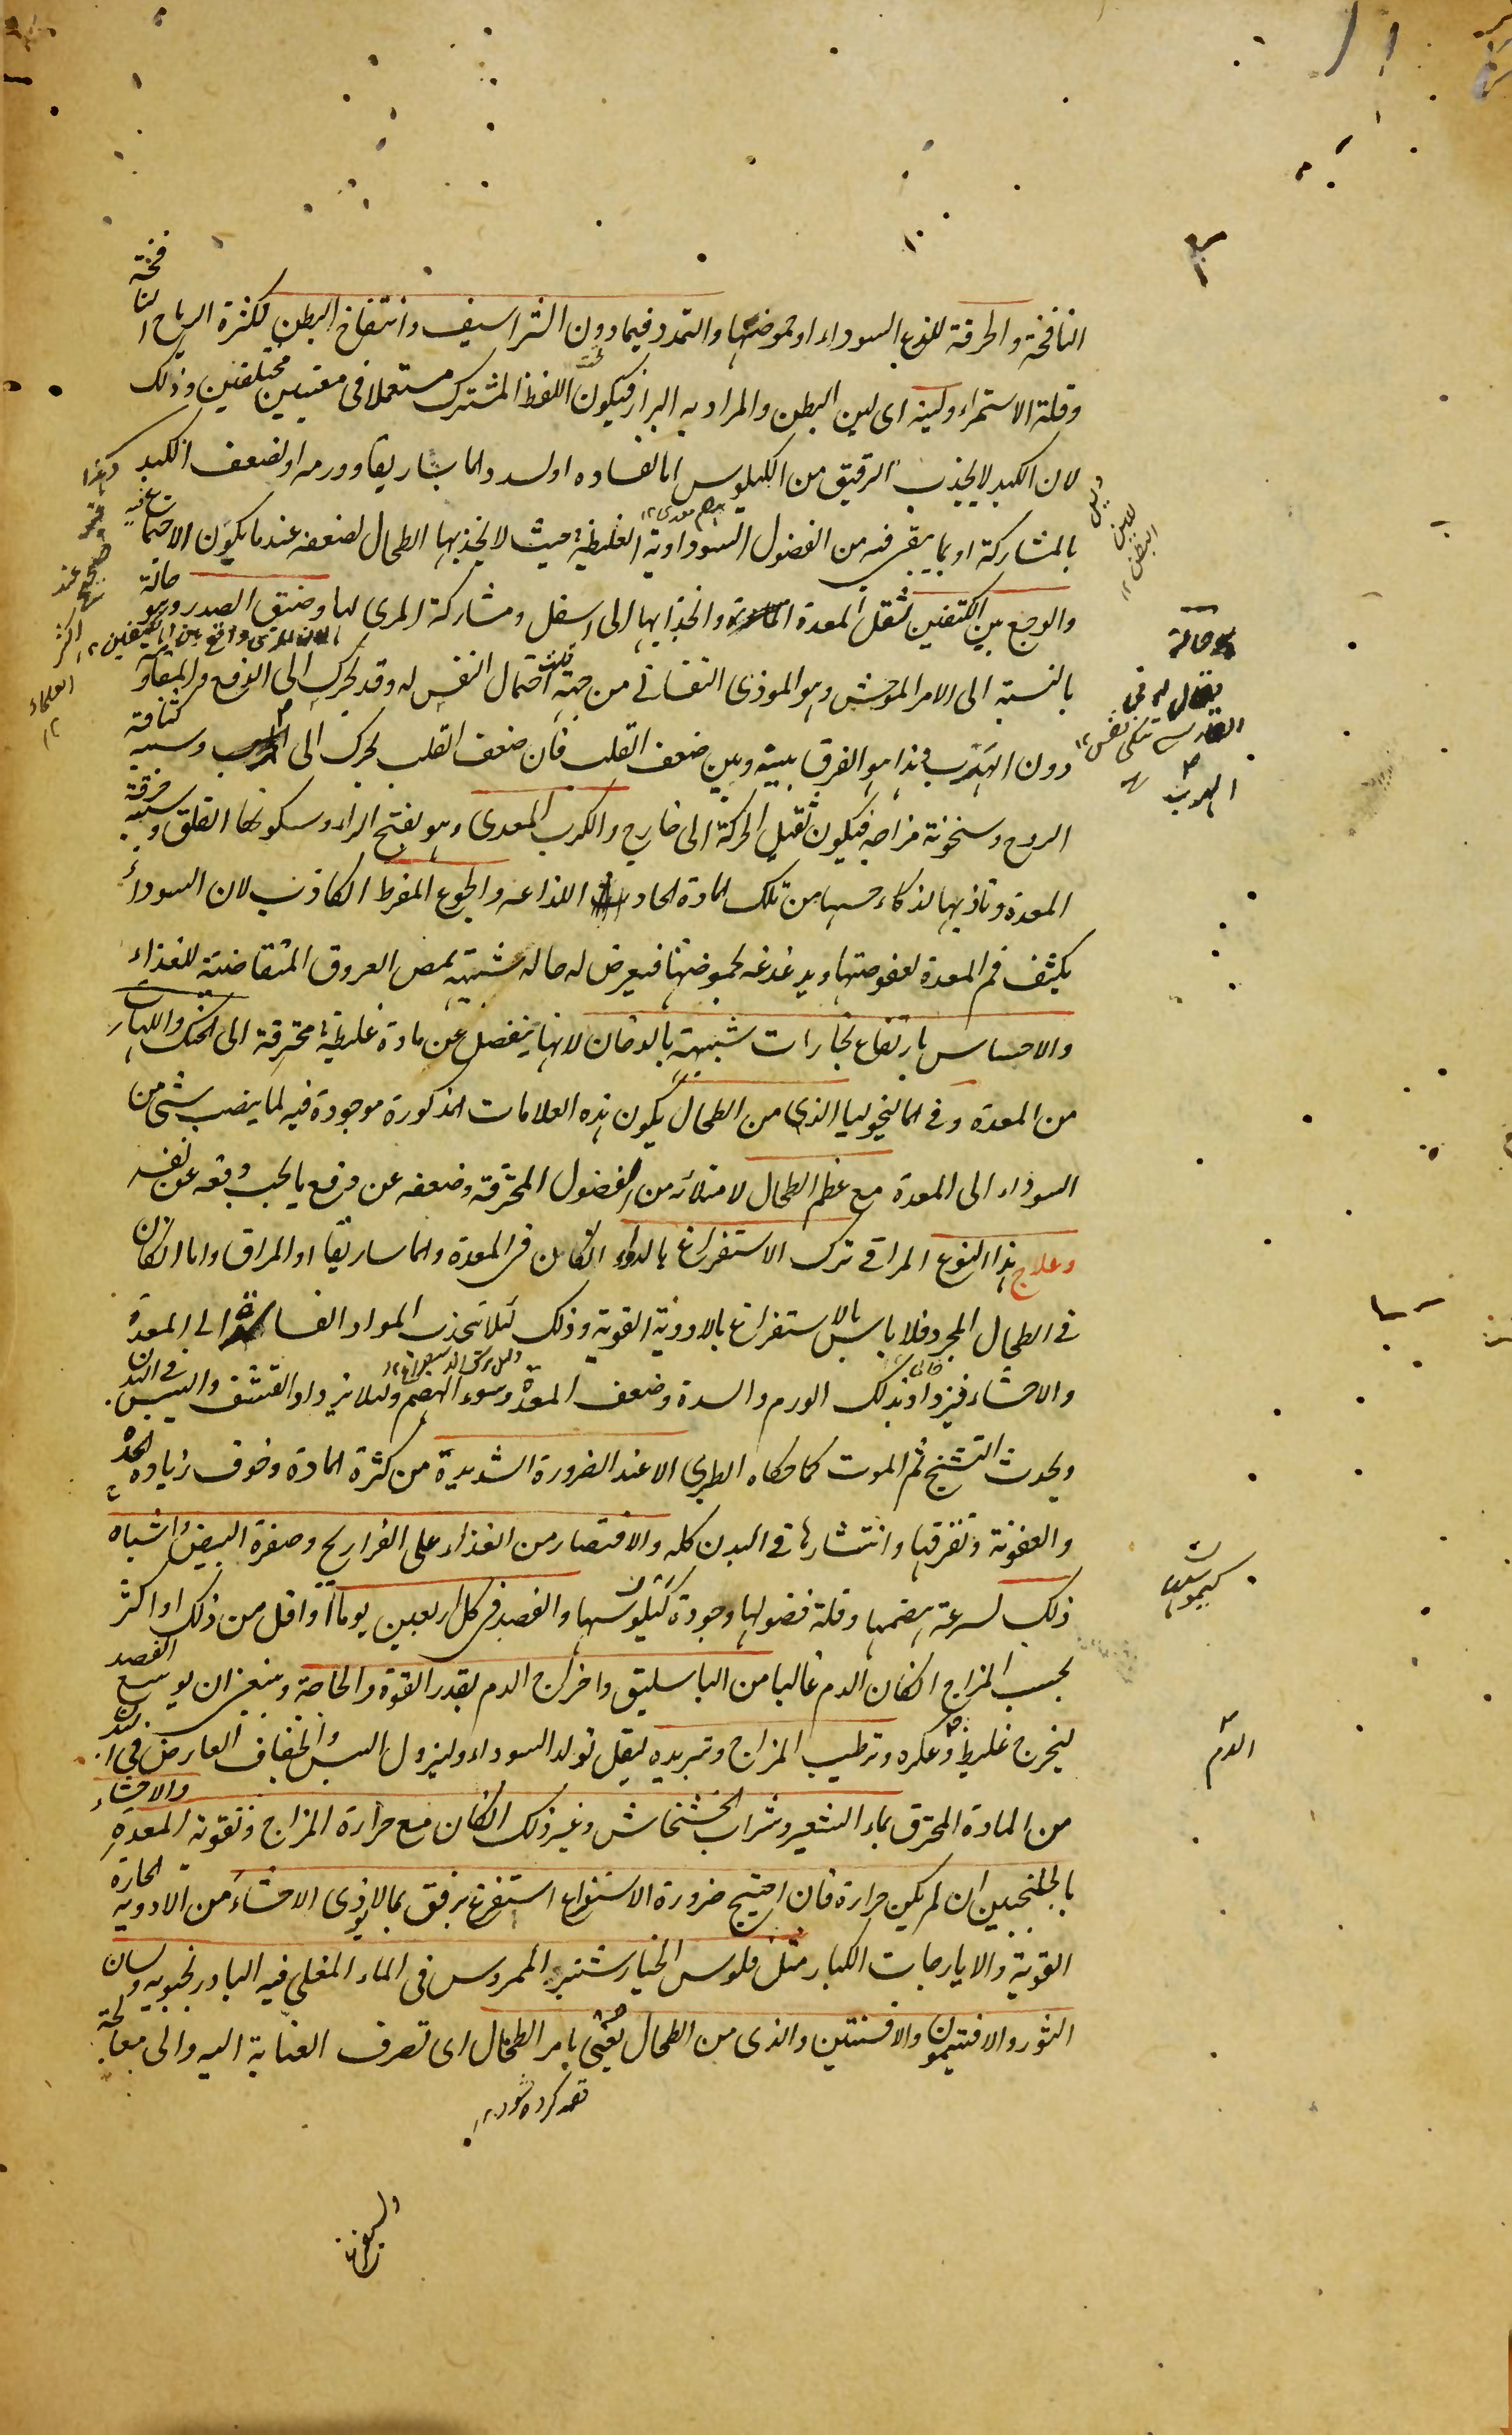 النافخة والحرقة للذع السوداء او حموضتها والتمدد فيما دون الشراسيف وانتفاخ البطن لكثرة الرياح النافخة
وقلة الاستمراء ولينه اى لين البطن والمراد به البراز فيكون اللفظ المشترك مستعملا فى معنيين مختلفين وذلك
لان الكبد لا يجذب الرقيق من الكيلوس اما لفساده او لسدد والماساريقا وورمه او لضعف الكبد
بالمشاركة او بما يبقى فيه من الفضول السوداوية الغليظة حيث لا يجذبها الطحال لضعفه عند ما يكون الاحتما
والوجع بين الكتفين لثقل المعدة وانجذابها الى اسفل ومشاركة المرى لها وضيق الصدر وهو حالة
بالنسبة الى الامر الموحش وهو الموذى النفسانى من جهة قلة احتمال النفس له وقد يحرك الى الدفع والمقاو
دون الهرب فهذا هو الفرق بينه وبين ضعف القلب فان ضعف القلب يحرك الى الهرب وسببه كثافة
الروح وسخونة مزاجه فيكون ثقيل الحركة الى خارج والكرب المعدى وهو بفتح الراء وسكونها القلق وسببه حرقة
المعدة وتاذيها لذكاء حسها من تلك المادة الحادة اللذاعه والجوع المفرط الكاذب لان السوداء
يكثف فم المعدة لعفوصتها ويدغدغه لحموضتها فيعرض له حاله شبيهة بمص العروق المتقاضية للغذاء
والاحساس بارتفاع بخارات شبيهة بالدخان لانها ينفصل عن مادة غليظة محترقة الى الحنك واللهات
من المعدة وفى المالنخوليا الذى من الطحال يكون هذه العلامات المذكورة موجودة فيه لما ينصب شئ من
السوداء الى المعدة مع عظم الطحال لامتلائه من الفضول المحترقة وضعفه عن دفع ما يجب دفعه عن نفسه
وعلاج هذا النوع المراقى ترك الاستفراغ بالدواء انكان فى المعدة والماساريقا او المراق واما انكان
فى الطحال المجرد فلا باس بالاستفراغ بالادوية القوية وذلك لئلا تجذب المواد الفاسدة الى المعدة
والاحشاء فيزداد بذلك الورم والسدة وضعف المعدة وسوء الهضم ولئلا يزداد القشف واليبس فى البدن
ويحدث التشنج ثم الموت كما حكاه الطبرى الا عند الضرورة الشديدة من كثرة المادة وخوف زيادة الحدة
والعفونة وتفرقها وانتشارها فى البدن كله والاقتصار من الغذاء على الفراريج وصفرة البيض واشباه
ذلك لسرعة هضمها وقلة فضولها وجودة كيلوسها والفصد فى كل اربعين يوما او اقل من ذلك او اكثر
بحسب المزاج انكان الدم غالبا من الباسليق واخراج الدم بقدر القوة والحاجة وينبغى ان يوسع الفصد
ليخرج غليظ وعكره وترطيب المزاج وتبريده ليقل تولد السوداء وليزول اليبس والجفاف العارض فى البدن
من المادة المحترق بماء الشعير وشراب الخشخاش وغير ذلك انكان مع حرارة المزاج وتقوية المعدة والاحشاء
بالجلنجبين ان لم يكن حرارة فان احتيج ضرورة الاستفراغ استفرغ برفق بما لا يوذى الاحشاء من الادوية الحارة
القوية والايارجات الكبار مثل فلوس الخيارشنبر الممروس فى الماء المغلى فيه البادرنجبويه ولسان
الثور والافتيمون والافسنتين والذى من الطحال يعنى بامر الطحال اى تصرف العناية اليه والى معالجة
قصد كرده شود ١٢
لين البطن ١٢
حالة
يقال له فى
الفارسى تنكى نفس ١٢
الهرب
عند
اكثر
العلماء
١٢
كيموسها
الدم